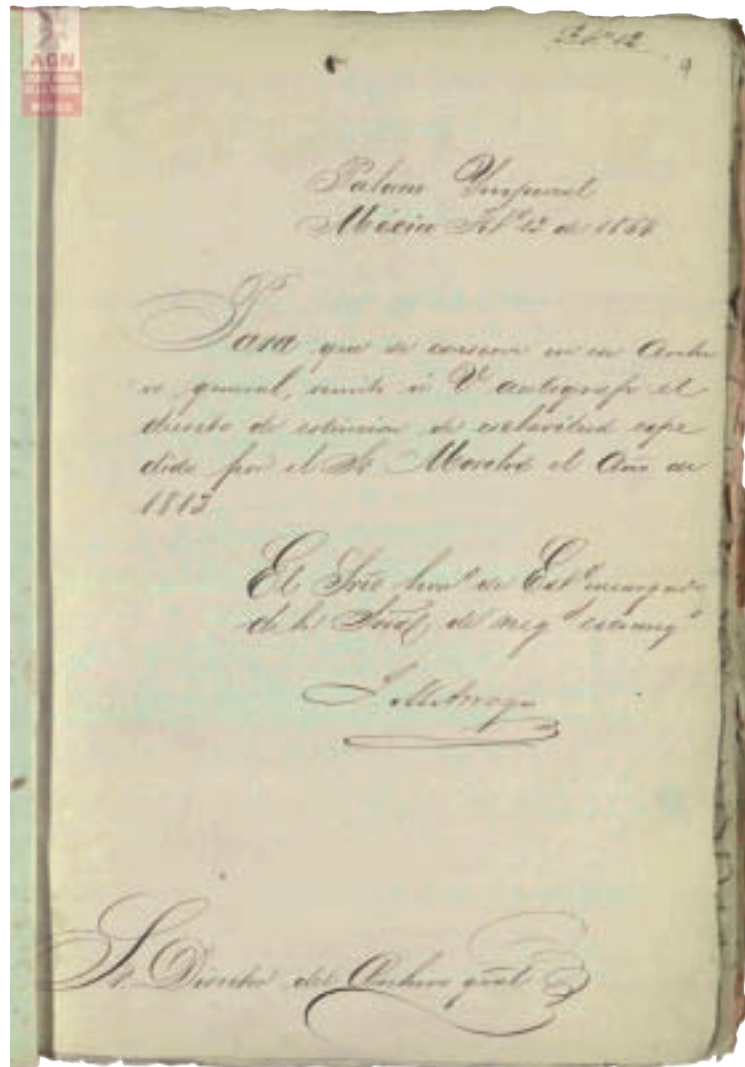 AGN
MÉXICO
Feb.º 12
9
Palacio Ymperial
México Feb.º 12 de 1864
Para que se conserve en ese Archi
vo general, remito á V. autógrafo el
decreto de estincion de esclavitud espe
dido por el Sr. Morelos el Año de
1813
El Srio de Est.º encargado
de la de neg.s estrang.s
J. M. Arroyo
Sr. Director del Archivo gral